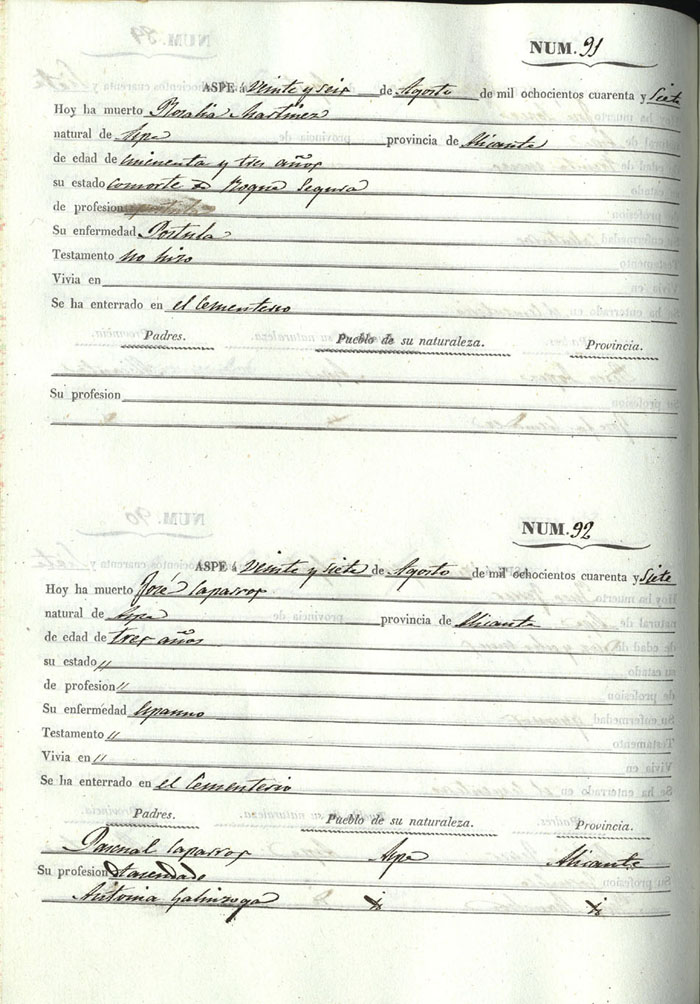 NUM. 91
ASPE á Veinte y seis de Agosto de mil ochocientos cuarenta y Siete
Hoy ha muerto Rosalia Martinez
natural de Aspe provincia de Alicante
de edad de cincuenta y tres años
su estado consorte de Roque Segura
de profesion
Su enfermedad Postula
Testamento no hizo
Vivia en
Se ha enterrado en el Cementerio
Padres. Pueblo de su naturaleza. Provincia.
Su profesion
NUM. 92
ASPE á Veinte y siete de Agosto de mil ochocientos cuarenta y Siete
Hoy ha muerto José Caparros
natural de Aspe provincia de Alicante
de edad de tres años
su estado "
de profesion "
Su enfermedad
Testamento "
Vivia en "
Se ha enterrado en el Cementerio
Padres. Pueblo de su naturaleza. Provincia.
Pascual Caparros Aspe Alicante
Su profesion Hacendado
Antonia Galinzoga